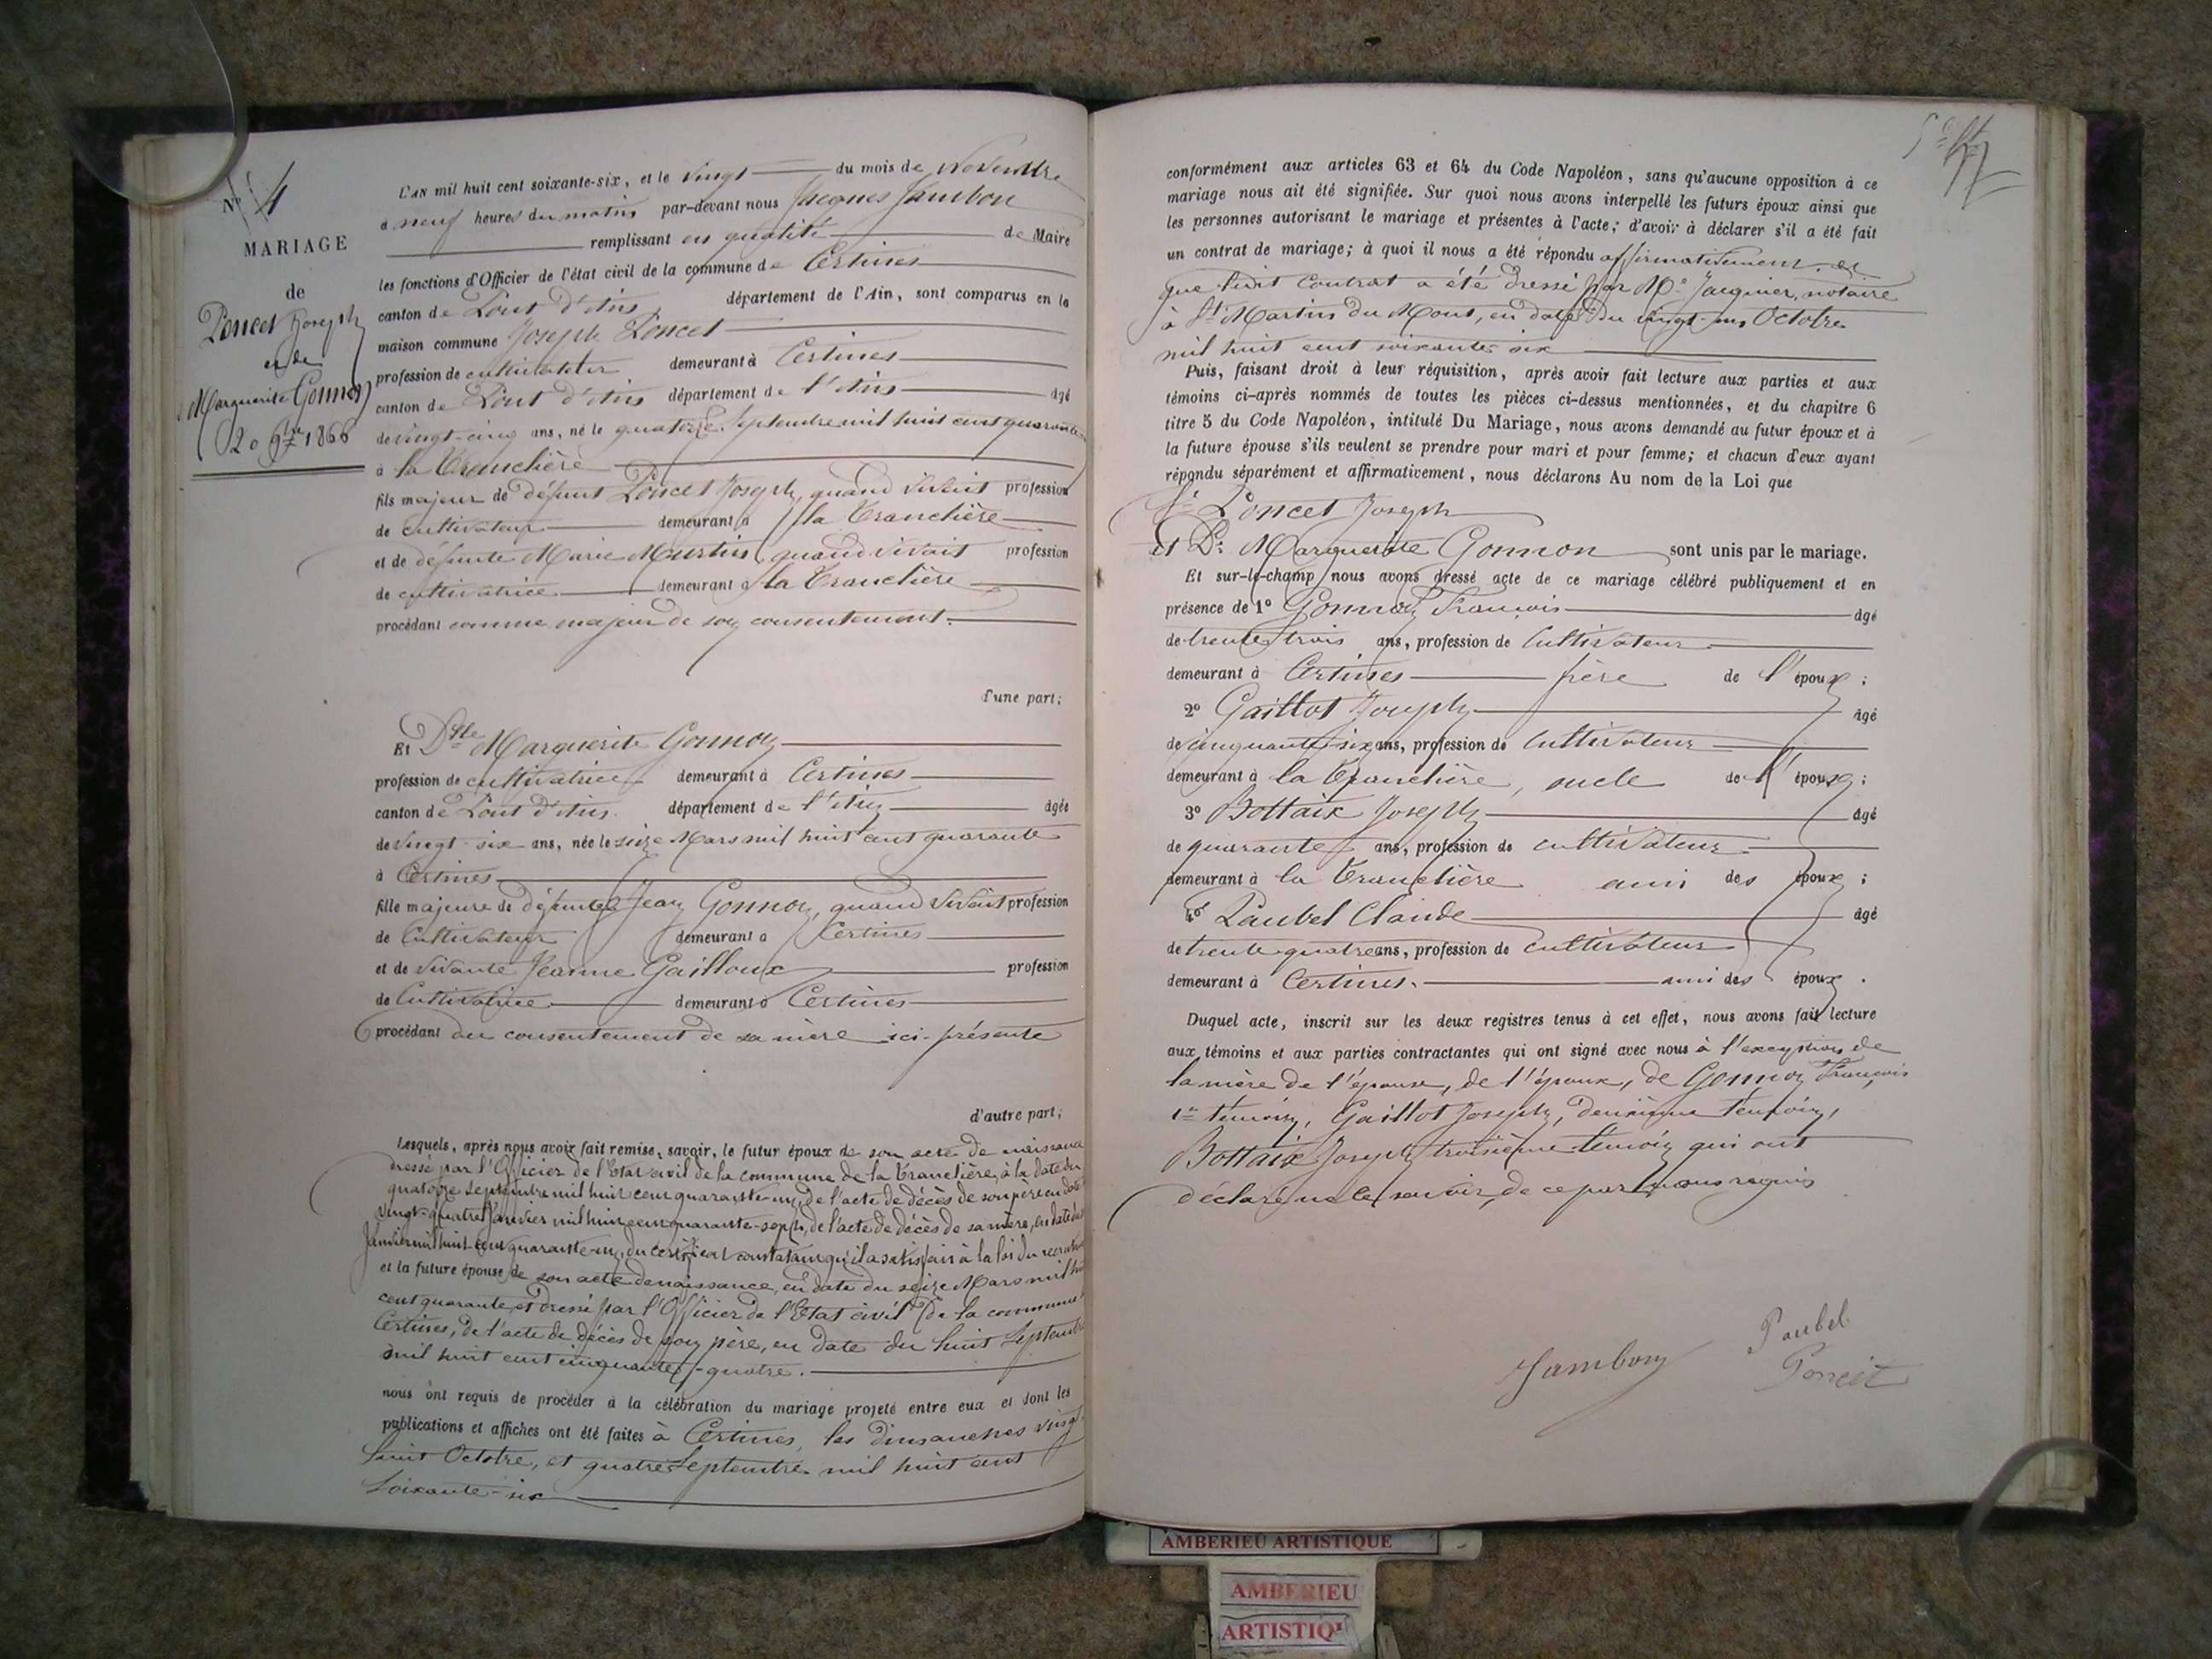 N° 4
MARIAGE
de
Poncet Joseph
et de
Marguerite Gonnon
20 9bre 1866
L'AN mil huit cent soixante-six, et le vingt du mois de Novembre
à neuf heures du matin par-devant nous Jacques Jambon
remplissant en qualité de Maire
les fonctions d'Officier de l'état civil de la commune de Certines
canton de Pont d'Ain département de l'Ain, sont comparus en la
maison commune Joseph Poncet
profession de cultivateur demeurant à Certines
canton de Pont d'Ain département de l'Ain âgé
de vingt-cinq ans, né le quatorze Septembre mil huit cent quarante
à la Tranclière
fils majeur de défunt Poncet Joseph, quand vivait profession
de cultivateur demeurant à la Tranclière
et de défunte Marie Martin quand vivait profession
de cultivatrice demeurant à la Tranclière
procédant comme majeur de son consentement.
d'une part;
Et Dlle Marguerite Gonnon
profession de cultivatrice demeurant à Certines
canton de Pont d'Ain département de l'Ain âgée
de vingt-six ans, née le seize Mars mil huit cent quarante
à Certines
fille majeure de défunt Jean Gonnon, quand vivait profession
de Cultivateur demeurant à Certines
et de vivante Jeanne Gailloux profession
de Cultivatrice demeurant à Certines
procédant du consentement de sa mère ici présente
d'autre part;
Lesquels, après nous avoir fait remise, savoir, le futur époux de son acte de naissance
dressé par l'Officier de l'Etat civil de la commune de la Tranclière, à la date du
quatorze Septembre mil huit cent quarante-un, de l'acte de décès de son père en date
vingt-quatre Janvier mil huit cent quarante-sept, de l'acte de décès de sa mère, en date du
Janvier mil huit cent quarante-un, du certificat constatant qu'il a satisfait à la loi du recrutem
et la future épouse de son acte de naissance, en date du seize Mars mil hu
cent quarante, et dressé par l'Officier de l'Etat civil de la commune
Certines, de l'acte de décès de son père, en date du huit Septembre
mil huit cent cinquante-quatre.
nous ont requis de procéder à la célébration du mariage projeté entre eux et dont les
publications et affiches ont été faites à Certines, les dimanches vingt
huit Octobre, et quatre Septembre mil huit cent
soixante-six
conformément aux articles 63 et 64 du Code Napoléon, sans qu'aucune opposition à ce
mariage nous ait été signifiée. Sur quoi nous avons interpellé les futurs époux ainsi que
les personnes autorisant le mariage et présentes à l'acte; d'avoir à déclarer s'il a été fait
un contrat de mariage; à quoi il nous a été répondu affirmativement, et
que ledit Contrat a été dressé par Me Jacquier, notaire
à St Martin du Mont, en date du vingt-un Octobre
mil huit cent soixante-six
Puis, faisant droit à leur réquisition, après avoir fait lecture aux parties et aux
témoins ci-après nommés de toutes les pièces ci-dessus mentionnées, et du chapitre 6
titre 5 du Code Napoléon, intitulé Du Mariage, nous avons demandé au futur époux et à
la future épouse s'ils veulent se prendre pour mari et pour femme; et chacun d'eux ayant
répondu séparément et affirmativement, nous déclarons Au nom de la Loi que
Sr Poncet Joseph
Et De Marguerite Gonnon sont unis par le mariage.
Et sur-le-champ nous avons dressé acte de ce mariage célébré publiquement et en
présence de 1° Gonnon François âgé
de trente-trois ans, profession de Cultivateur
demeurant à Certines frère de l'époux;
2° Gaillot Joseph âgé
de cinquante-six ans, profession de Cultivateur
demeurant à la Tranclière, oncle de l'épouse;
3° Bottaix Joseph âgé
de quarante ans, profession de cultivateur
demeurant à la Tranclière ami des époux;
4° Paubel Claude âgé
de trente quatre ans, profession de cultivateur
demeurant à Certines. ami des époux.
Duquel acte, inscrit sur les deux registres tenus à cet effet, nous avons fait lecture
aux témoins et aux parties contractantes qui ont signé avec nous à l'exception de
la mère de l'épouse, de l'épouse, de Gonnon François
1er témoin, Gaillot Joseph, deuxième témoin,
Bottaix Joseph troisième témoin qui ont
déclaré ne le savoir, de ce par nous requis
Jambon
Paubel
Poncet
AMBERIEU ARTISTIQUE
AMBERIEU
ARTISTIQ